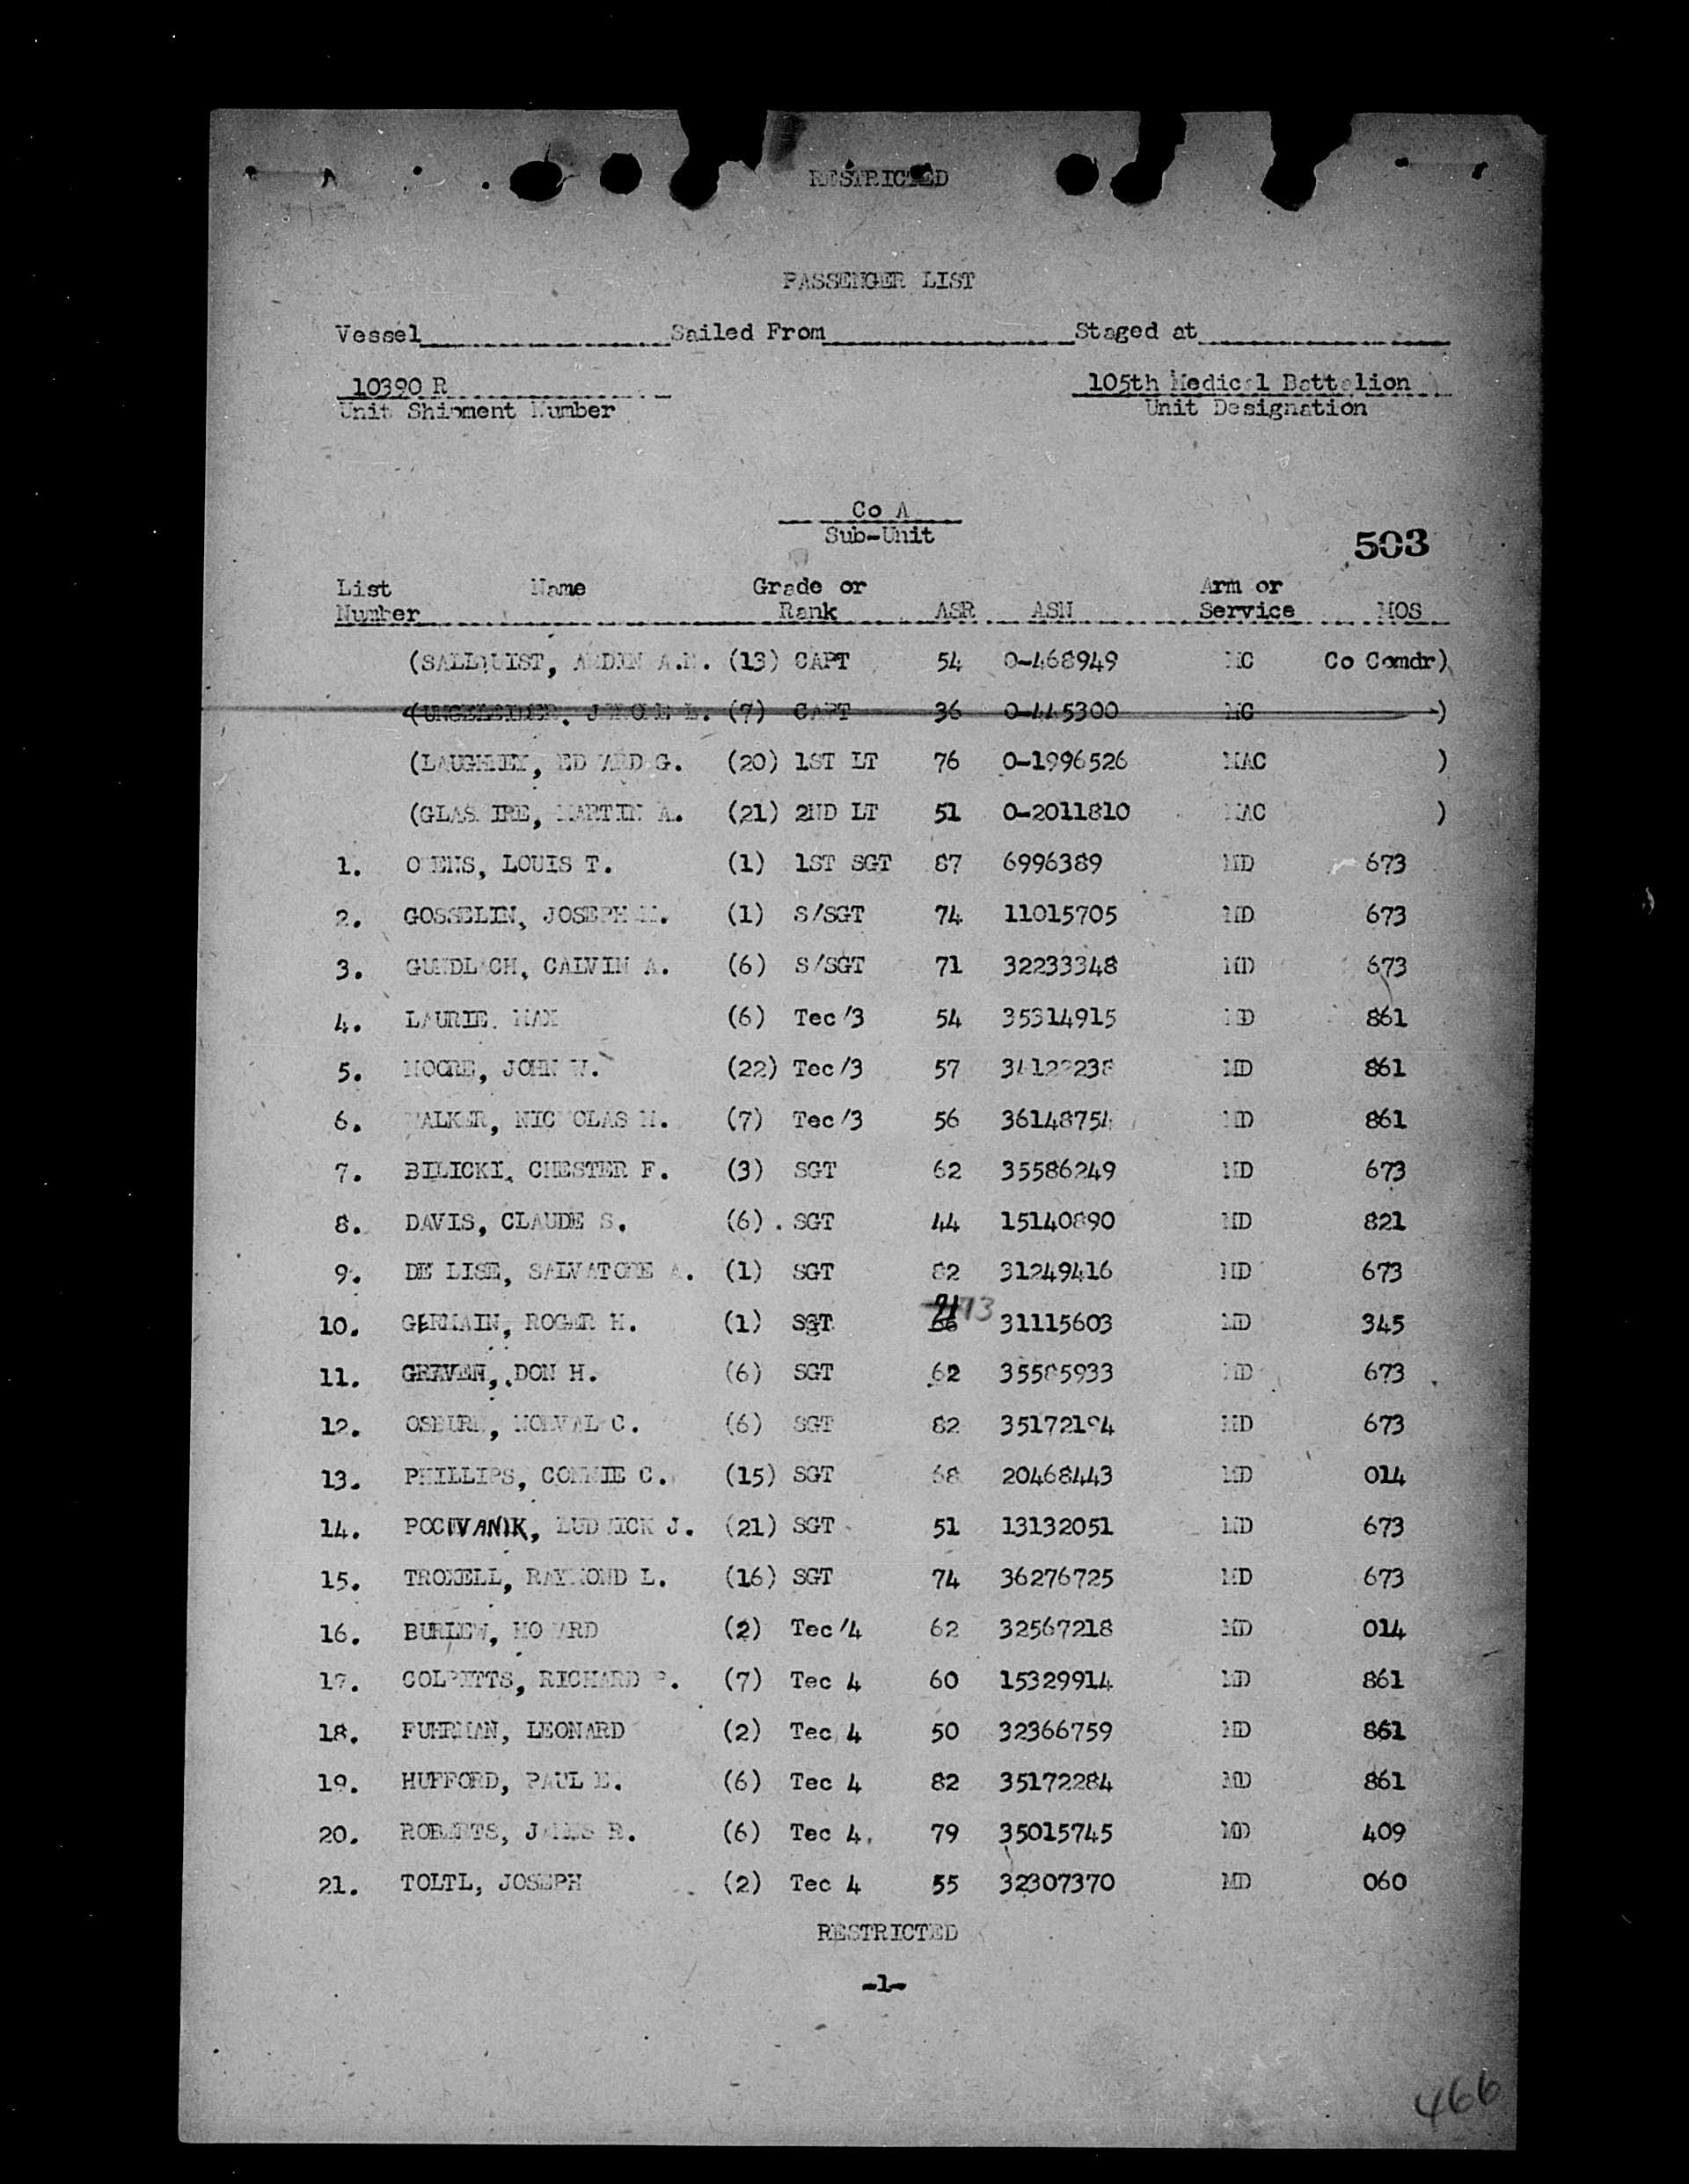 RESTRICTED
PASSENGER LIST
Vessel Sailed From Staged at
10390 R 105th Medical Battalion
Unit Shipment Number Unit Designation
Co A
Sub-Unit
503
List Name Grade or Arm or
Number Rank ASR ASN Service MOS
(SALLQUIST, A.N. (13) CAPT 54 0-468949 MC Co Comdr)
(7) CAPT 36 0-445300 MC )
(LAUGHNEY, EDWARD G. (20) 1ST LT 76 0-1996526 MAC )
(GLASMIRE, MARTIN A. (21) 2ND LT 51 0-2011810 MAC )
1. OWENS, LOUIS T. (1) 1ST SGT 87 6996389 MD 673
2. GOSSELIN, JOSEPH M. (1) S/SGT 74 11015705 MD 673
3. GUNDLACH, CALVIN A. (6) S/SGT 71 32233348 MD 673
4. LAURIE, MAX (6) Tec/3 54 35314915 MD 861
5. MOORE, JOHN W. (22) Tec/3 57 MD 861
6. WALKER, NICHOLAS M. (7) Tec/3 56 36148754 MD 861
7. BILICKI, CHESTER F. (3) SGT 62 35586249 MD 673
8. DAVIS, CLAUDE S. (6) . SGT 44 15140890 MD 821
9. DE LISE, SALVATORE A. (1) SGT 82 31249416 MD 673
10. GERMAIN, ROGER H. (1) SGT 73 31115603 MD 345
11. GRAVEN, DON H. (6) SGT 62 35585933 MD 673
12. OSBURN, NORVAL C. (6) SGT 82 35172194 MD 673
13. PHILLIPS, CONNIE C. (15) SGT 68 20468443 MD 014
14. POCIVANIK, LUDWICK J. (21) SGT 51 13132051 MD 673
15. TROXELL, RAYMOND L. (16) SGT 74 36276725 MD 673
16. BURLEW, HOWARD (2) Tec/4 62 32567218 MD 014
17. COLPITTS, RICHARD P. (7) Tec 4 60 15329914 MD 861
18. FUHRMAN, LEONARD (2) Tec 4 50 32366759 MD 861
19. HUFFORD, PAUL E. (6) Tec 4 82 35172284 MD 861
20. ROBERTS, JAMES R. (6) Tec 4 79 35015745 MD 409
21. TOLTL, JOSEPH (2) Tec 4 55 32307370 MD 060
RESTRICTED
-1-
466